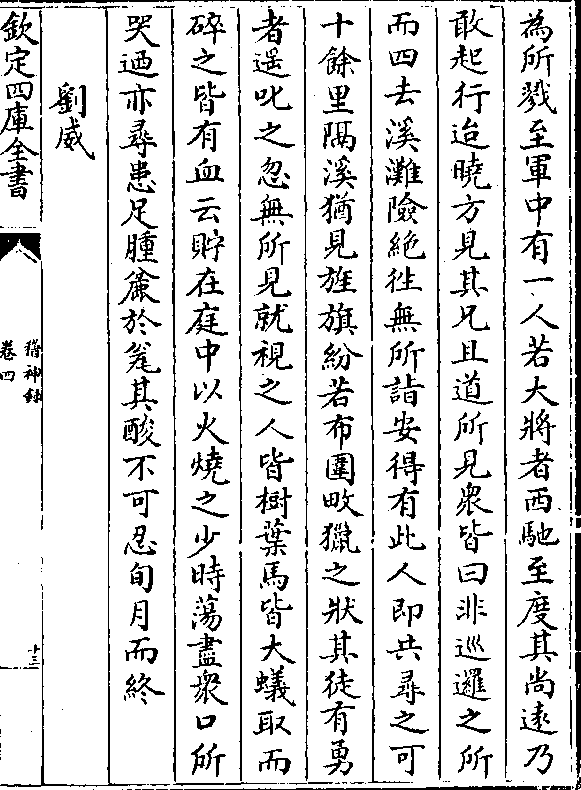 為所戮至軍中有一人若大將者西馳至度其尚逺乃
敢起行迨曉方見其兄且道所見衆皆曰非巡邏之所
而四去溪灘險絶徃無所詣安得有此人即共尋之可
十餘里隔溪猶見旌旗紛若布圍畋獵之狀其徒有勇
者遥叱之忽無所見就視之人皆樹葉馬皆大蟻取而
碎之皆有血云貯在庭中以火燒之少時蕩盡衆口所
哭迺亦尋患足腫麄於瓮其酸不可忍旬月而終
劉威
欽定四庫全書
稽神録
卷四
十三